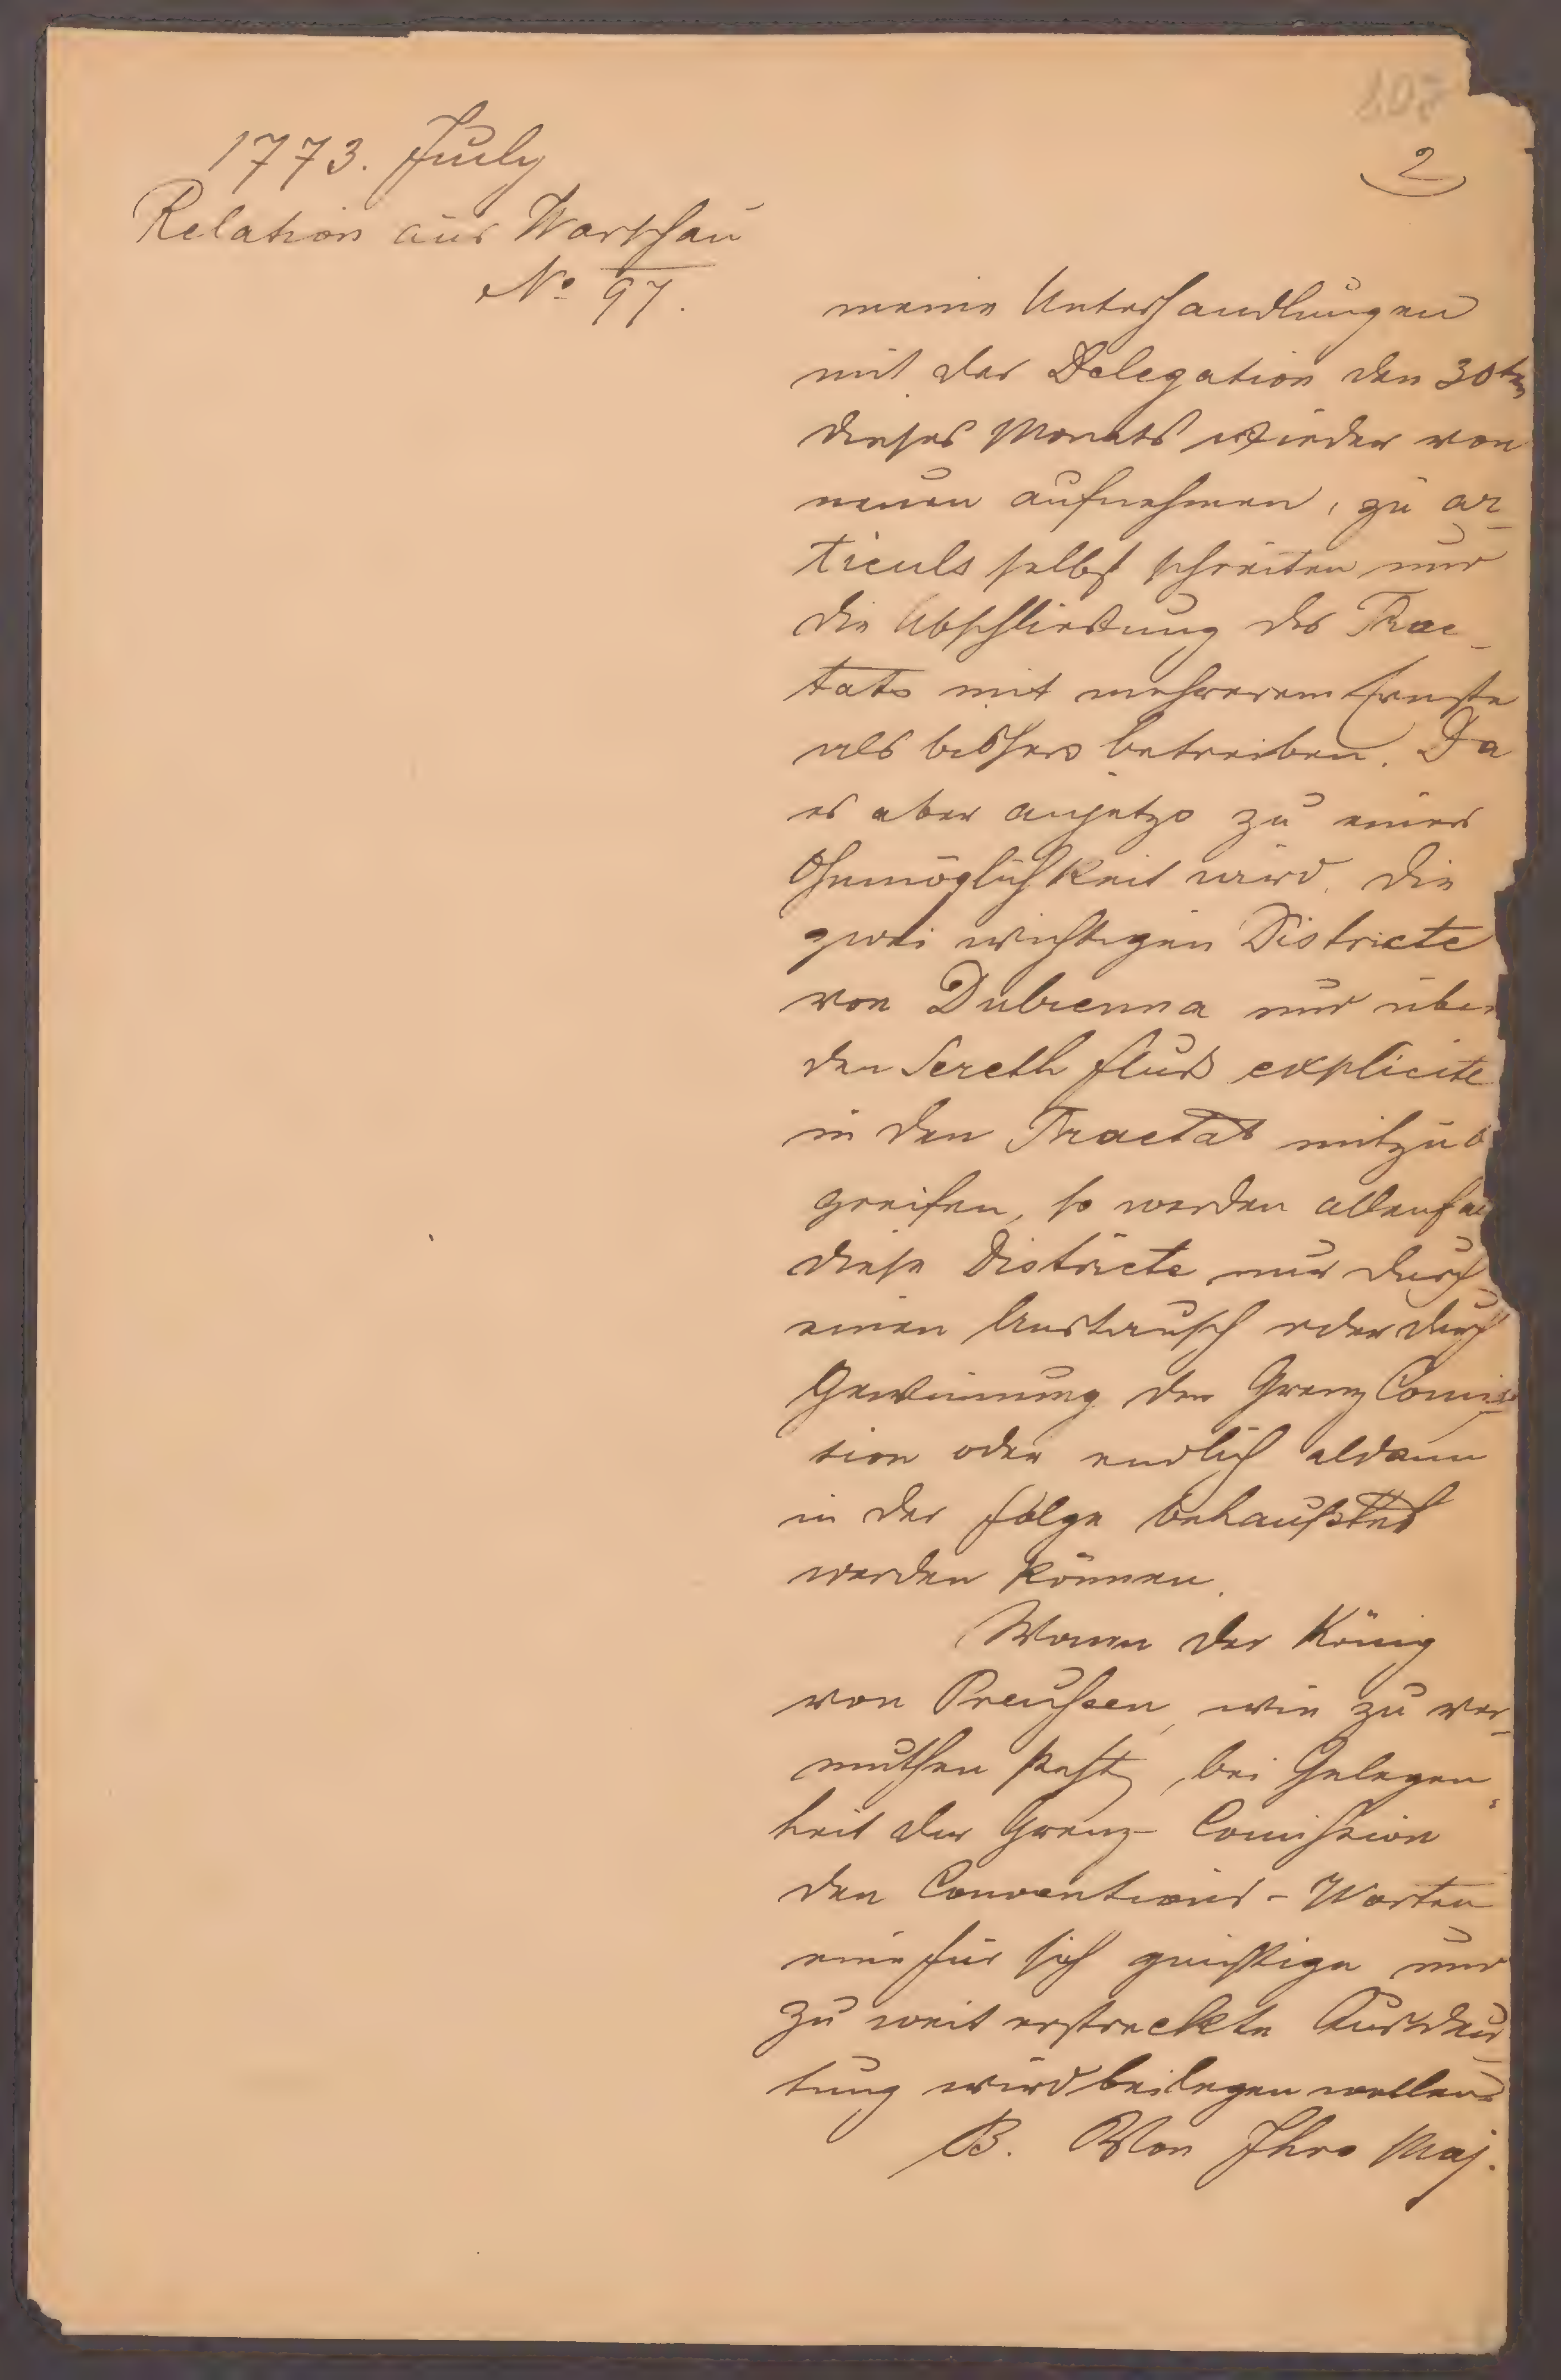 107
2
1773. July
Relation aus Warschau
No 97.
meine Unterhandlungen
mit der Delegation den 30ten
dieses Monats wieder von
neuen aufnehmen, zu ar-
ticuls selbst schreiten und
die Abschließung des Trac-
tats mit mehrerem Ernste
als bishero betreiben. Da
es aber anjetzo zu einer
Ohnmöglichkeit wird, die
zwei wichtigen Districte
von Dubienna und über
den Sereth fluß explicite
in den Tractat mitzub
greifen, so werden allenfal
diese Districte nur durch
einen Austausch oder durch
Gewinnung der Grenz Comis-
sion oder endlich aldann
in der folge behauptet
werden können.
Wann der König
von Preussen, wie zu ver-
muthen steht, bei Gelegen-
heit der Grenz- Comission
den Conventions-Worten
eine für sich günstige und
zu weit erstreckte Ausdeu-
tung wird beilegen wollen
B. Von Ihro Maj.